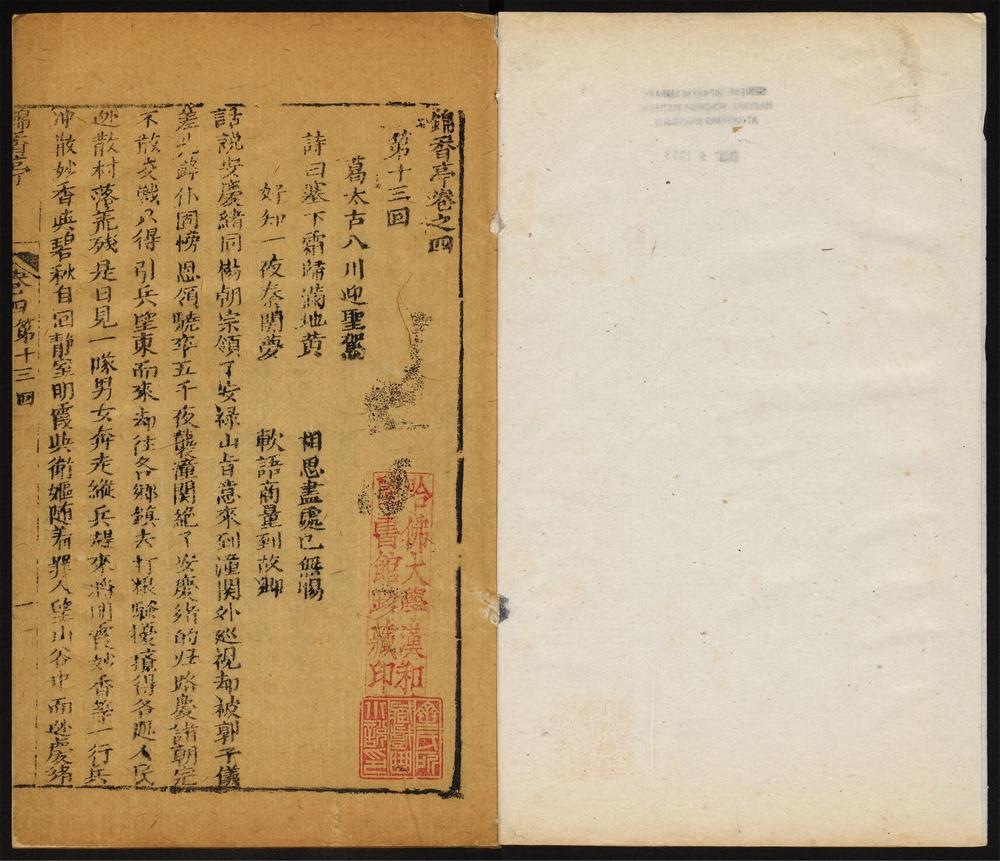 錦香亭卷之四
第十三回
葛太古入川迎聖駕
詩曰塞下霜滿地黃 相思盡處已無腸
好知一夜秦關夢 軟語商量到故鄉
話說安慶緒同楊朝宗領了安祿山旨意來到潼關外巡視却被郭子儀
差先鋒仆固懷恩領驍卒五千夜襲潼關絕了安慶緒的歸路慶諸朝宗
不敢交戰只得引兵望東而來却往各鄉鎮去打粮騷擾得各處人民
逃散村落荒殘是日見一隊男女奔走縱兵趕來將明霞妙香等一行兵
冲散妙香與碧秋自回靜室明霞與衛嫗隨着衆人望山谷中而逃慶緒
錦香亭
卷四第十三回
一
哈佛大學漢和
圖書館珍藏印